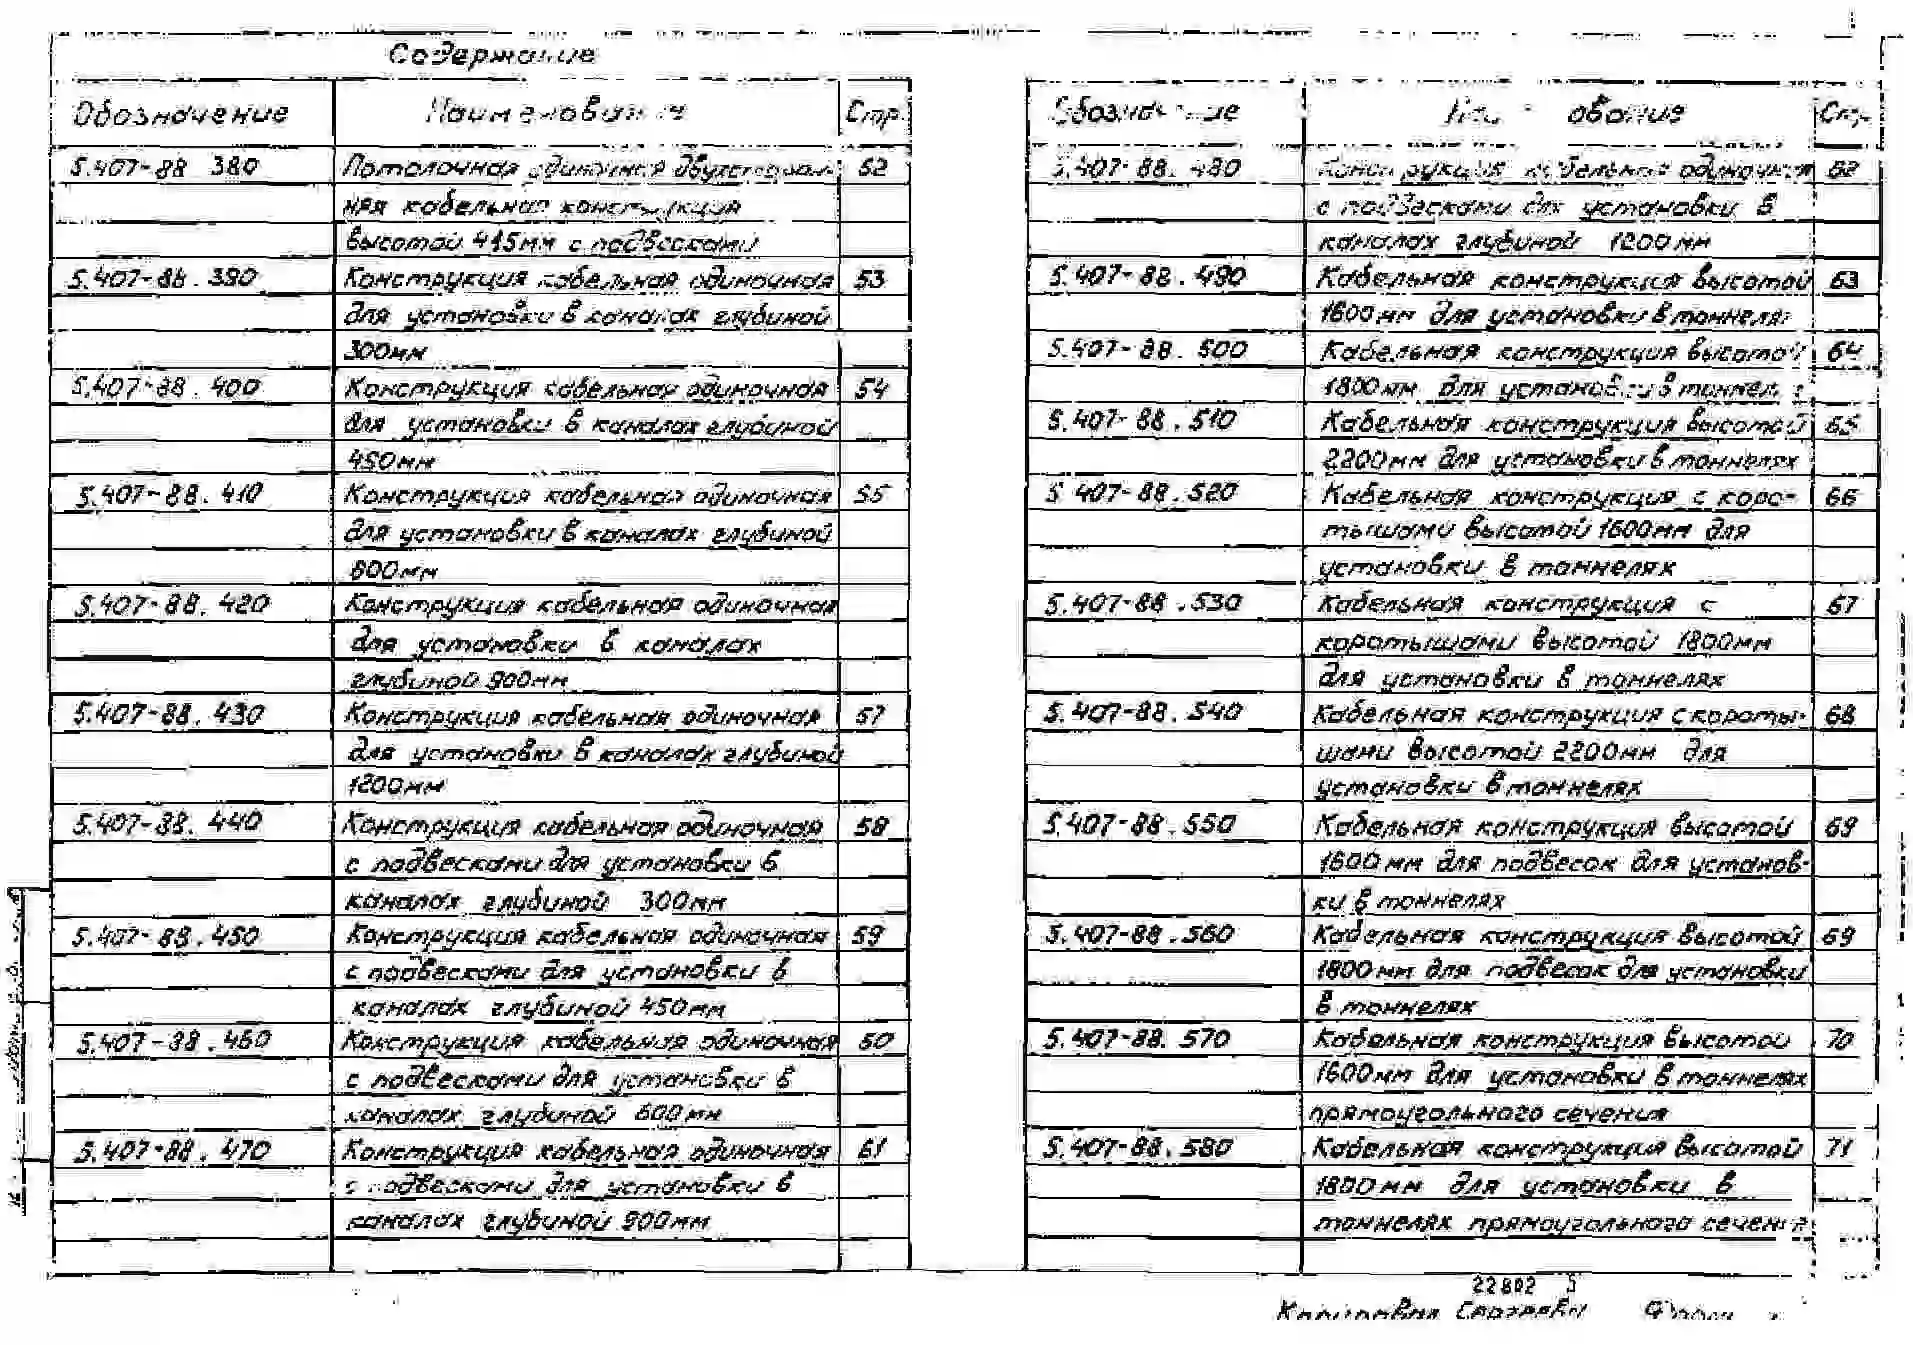 Содержание
Обозначение Наименования Стр.
5.407-88 380 Потолочная одиночная двухсторон- 52
няя кабельная конструкция
высотой 415мм с подвесками
5.407-88.390 Конструкция кабельная одиночная 53
для установки в каналах глубиной
300мм
5.407-88.400 Конструкция кабельная одиночная 54
для установки в каналах глубиной
450мм
5.407-88.410 Конструкция кабельная одиночная 55
для установки в каналах глубиной
600мм
5.407-88.420 Конструкция кабельная одиночная
для установки в каналах
глубиной 900мм
5.407-88.430 Конструкция кабельная одиночная 57
для установки в каналах глубиной
1200мм
5.407-88.440 Конструкция кабельная одиночная 58
с подвесками для установки в
каналах глубиной 300мм
5.407-88.450 Конструкция кабельная одиночная 59
с подвесками для установки в
каналах глубиной 450мм
5.407-88.460 Конструкция кабельная одиночная 60
с подвесками для установки в
каналах глубиной 600мм
5.407-88.470 Конструкция кабельная одиночная 61
с подвесками для установки в
каналах глубиной 900мм
Обозначение Наименование Стр.
5.407-88.480 Конструкция кабельная одиночная 62
с подвесками для установки в
каналах глубиной 1200мм
5.407-88.490 Кабельная конструкция высотой 63
1600мм для установки в тоннелях
5.407-88.500 Кабельная конструкция высотой 64
1800мм для установки в тоннелях
5.407-88.510 Кабельная конструкция высотой 65
2200мм для установки в тоннелях
5.407-88.520 Кабельная конструкция с коро- 66
тышами высотой 1600мм для
установки в тоннелях
5.407-88.530 Кабельная конструкция с 67
коротышами высотой 1800мм
для установки в тоннелях
5.407-88.540 Кабельная конструкция с короты- 68
шами высотой 2200мм для
установки в тоннелях
5.407-88.550 Кабельная конструкция высотой 69
1600мм для подвесок для установ-
ки в тоннелях
5.407-88.560 Кабельная конструкция высотой 69
1800мм для подвесок для установки
в тоннелях
5.407-88.570 Кабельная конструкция высотой 70
1600мм для установки в тоннелях
прямоугольного сечения
5.407-88.580 Кабельная конструкция высотой 71
1800мм для установки в
тоннелях прямоугольного сечения
22802 5
Копировал